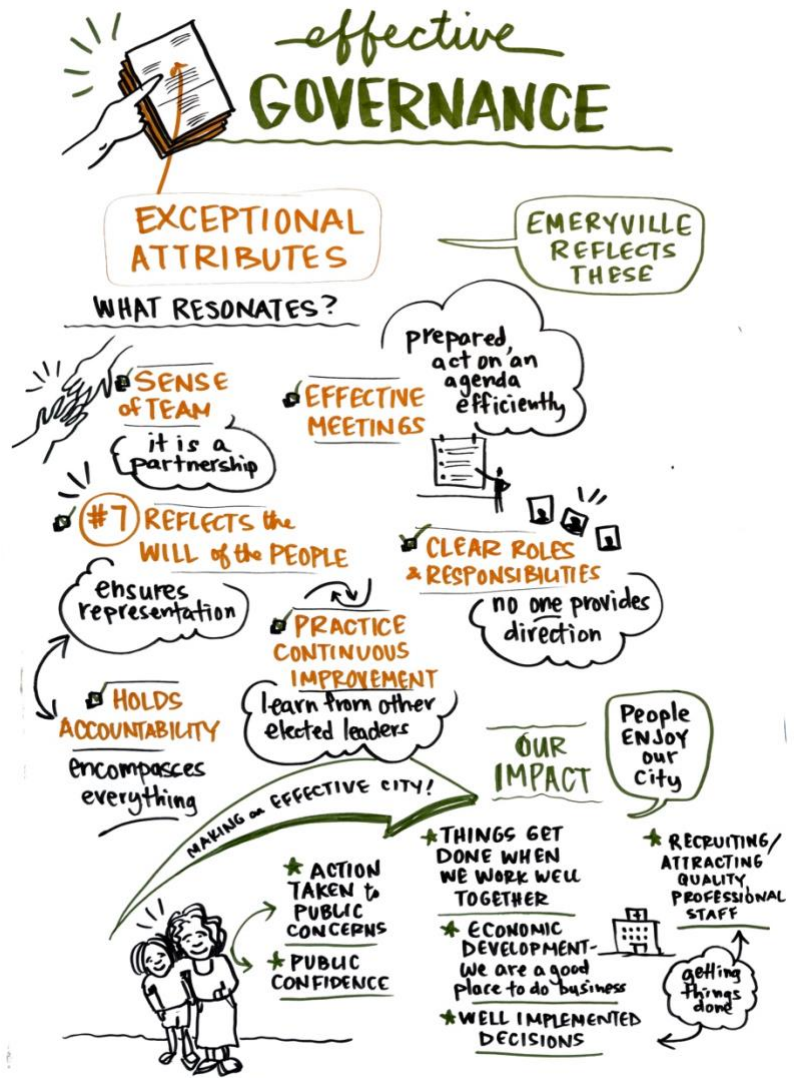 effective
GOVERNANCE
EXCEPTIONAL
ATTRIBUTES
EMERYVILLE
REFLECTS
THESE
WHAT RESONATES?
SENSE
of TEAM
it is a
partnership
EFFECTIVE
MEETINGS
prepared,
act on an
agenda
efficiently
#7 REFLECTS the
WILL of the PEOPLE
ensures
representation
CLEAR ROLES
& RESPONSIBILITIES
no one provides
direction
PRACTICE
CONTINUOUS
IMPROVEMENT
learn from other
elected leaders
HOLDS
ACCOUNTABILITY
encompasses
everything
MAKING an EFFECTIVE CITY!
OUR
IMPACT
People
ENJOY
our
City
ACTION
TAKEN to
PUBLIC
CONCERNS
PUBLIC
CONFIDENCE
THINGS GET
DONE WHEN
WE WORK WELL
TOGETHER
ECONOMIC
DEVELOPMENT-
we are a good
place to do business
WELL IMPLEMENTED
DECISIONS
RECRUITING/
ATTRACTING
QUALITY,
PROFESSIONAL
STAFF
getting
things
done